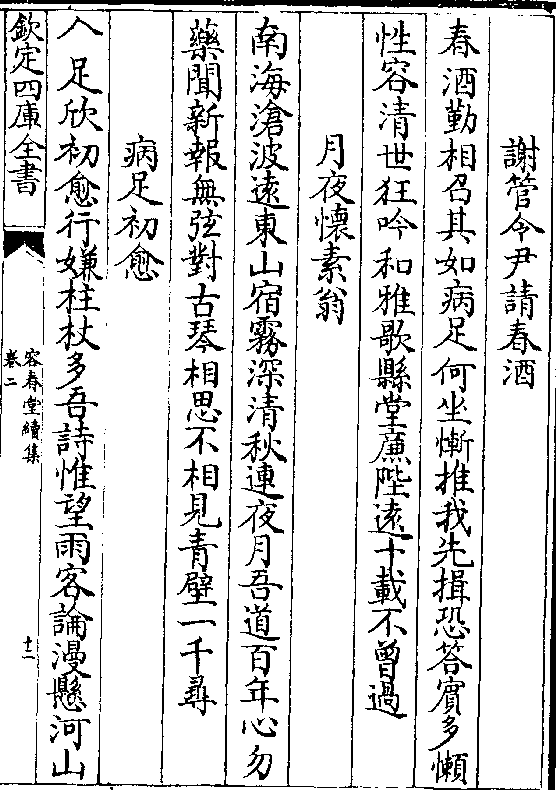 謝管令尹請春酒
春酒勤相召其如病足何坐慚推我先揖恐答賔多懶
性容清世狂吟和雅歌縣堂㢘陛遠十載不曾過
月夜懷素翁
南海滄波遠東山宿霧深清秋連夜月吾道百年心勿
藥聞新報無弦對古琴相思不相見青壁一千尋
病足初愈
入足欣初愈行嫌柱杖多吾詩惟望雨客論漫懸河山
欽定四庫全書
容春堂續集
卷二
十二